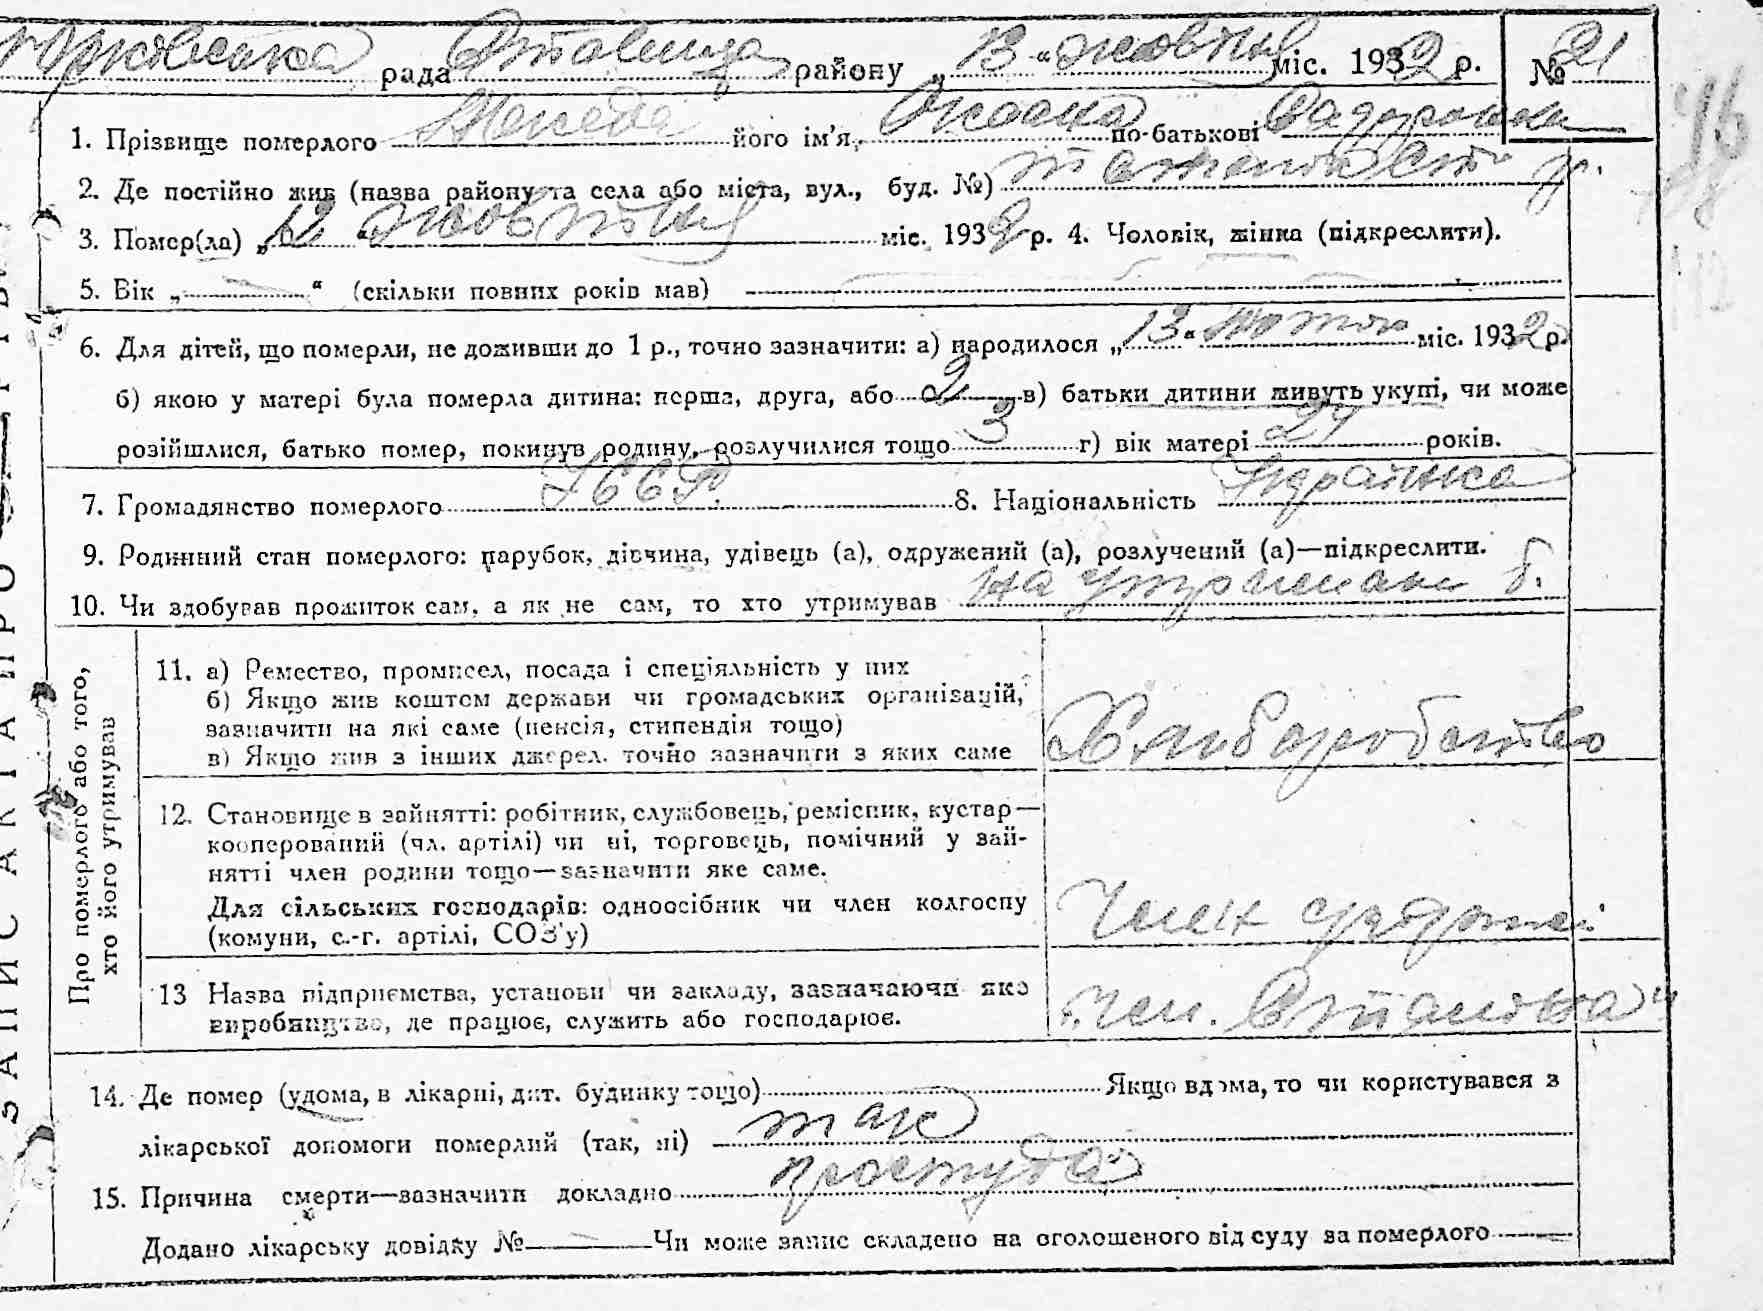 Юрківська рада Ставища району „13“ жовтня міс. 1932 р. № 21
1. Прізвище померлого його ім'я Оксана по-батькові
2. Де постійно жив (назва району та села або міста, вул., буд. №)
3. Помер(ла) „12“ жовтня міс. 1932 р. 4. Чоловік, жінка (підкреслити).
5. Вік „—“ (скільки повних років мав) —
6. Для дітей, що померли, не доживши до 1 р., точно зазначити: а) народилося „13“ лютого міс. 1932 р.
б) якою у матері була померла дитина: перша, друга, або 2 в) батьки дитини живуть укупі, чи може
розійшлися, батько помер, покинув родину, розлучилися тощо 3 г) вік матері 27 років.
7. Громадянство померлого УССР. 8. Національність Українка
9. Родинний стан померлого: парубок, дівчина, удівець (а), одружений (а), розлучений (а)—підкреслити.
10. Чи здобував прожиток сам, а як не сам, то хто утримував на утриманні б.
ЗАПИС АКТА ПРО СМЕРТЬ
Про померлого або того,
хто його утримував
11. а) Ремество, промисел, посада і спеціяльність у них
б) Якщо жив коштом держави чи громадських організацій,
зазначити на які саме (пенсія, стипендія тощо)
в) Якщо жив з інших джерел, точно зазначити з яких саме
Хліборобство
12. Становище в зайнятті: робітник, службовець, ремісник, кустар—
кооперований (чл. артілі) чи ні, торговець, помічний у зай-
нятті член родини тощо—зазначити яке саме.
Для сільських господарів: одноосібник чи член колгоспу
(комуни, с.-г. артілі, СОЗ'у)
Член
13 Назва підприємства, установи чи закладу, зазначаючи яке
виробництво, де працює, служить або господарює.
14. Де помер (удома, в лікарні, дит. будинку тощо) Якщо вдома, то чи користувався з
лікарської допомоги померлий (так, ні) так
15. Причина смерти—зазначити докладно простуда
Додано лікарську довідку № — Чи може запис складено на оголошеного від суду за померлого —